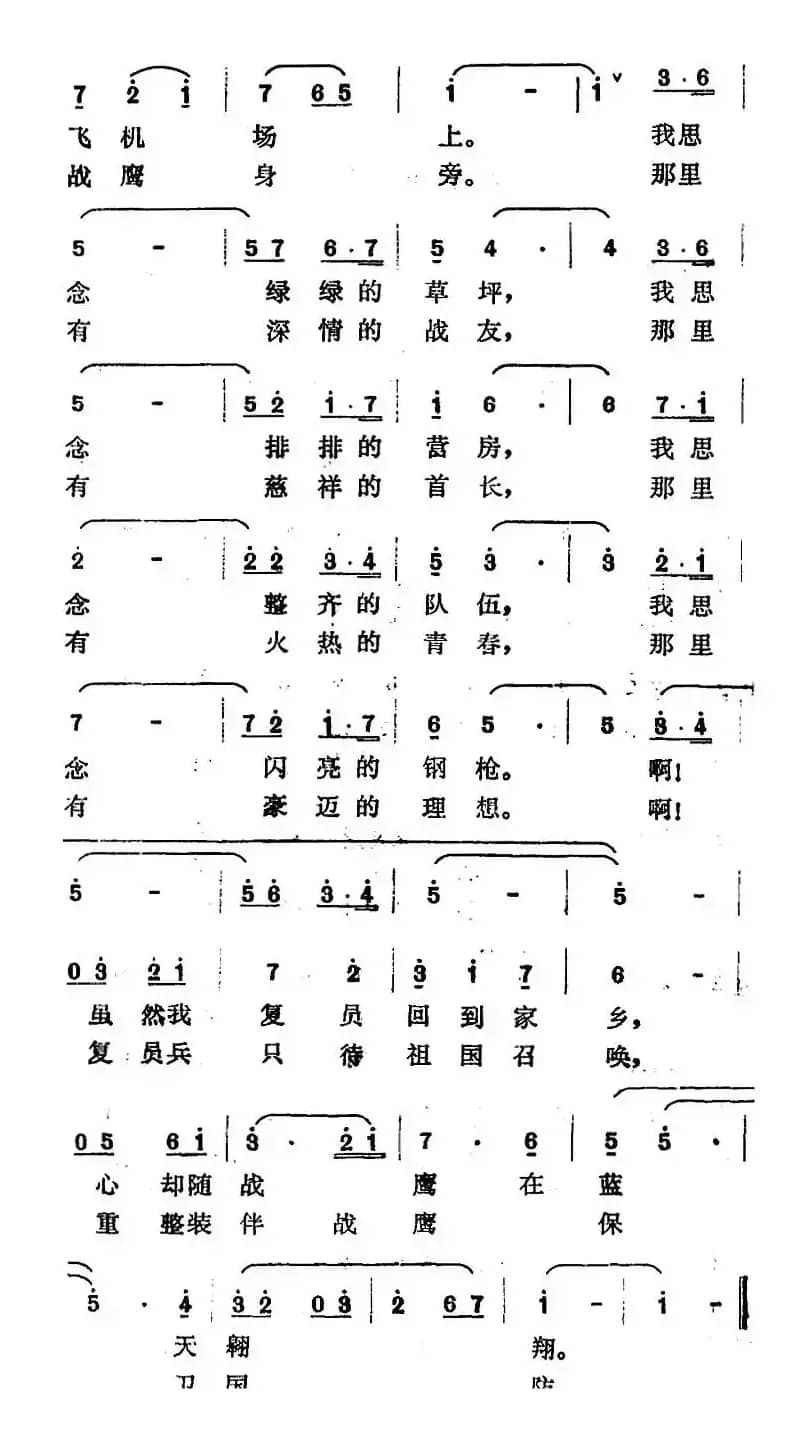 7 2 1 | 7 65 | 1 - | 1 ∨ 3·6 |
飞机 场 上。 我思
战鹰 身 旁。 那里
5 - | 57 6·7 | 5 4 · | 4 3·6 |
念 绿绿的草坪, 我思
有 深情的战友, 那里
5 - | 52 1·7 | 1 6 · | 6 7·1 |
念 排排的营房, 我思
有 慈祥的首长, 那里
2 - | 22 3·4 | 5 3 · | 3 2·1 |
念 整齐的队伍, 我思
有 火热的青春, 那里
7 - | 72 1·7 | 6 5 · | 5 3·4 |
念 闪亮的钢枪。 啊!
有 豪迈的理想。 啊!
5 - | 56 3·4 | 5 - | 5 - |
03 21 | 7 2 | 3 1 7 | 6 - |
虽然我 复员回到家 乡,
复员兵 只待祖国召 唤,
05 61 | 3 · 21 | 7 · 6 | 5 5 · |
心 却随战 鹰 在 蓝
重 整装伴 战 鹰 保
5 · 4 | 32 03 | 2 67 | 1 - | 1 - ‖
天 翱 翔。
卫 国 防